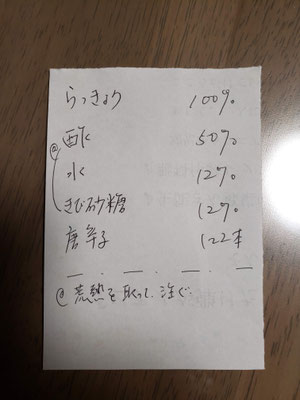 らっきょう 100%
酢 50%
水 12%
きび砂糖 12%
唐辛子 1,2本
@ 荒熱を取って、注ぐ。